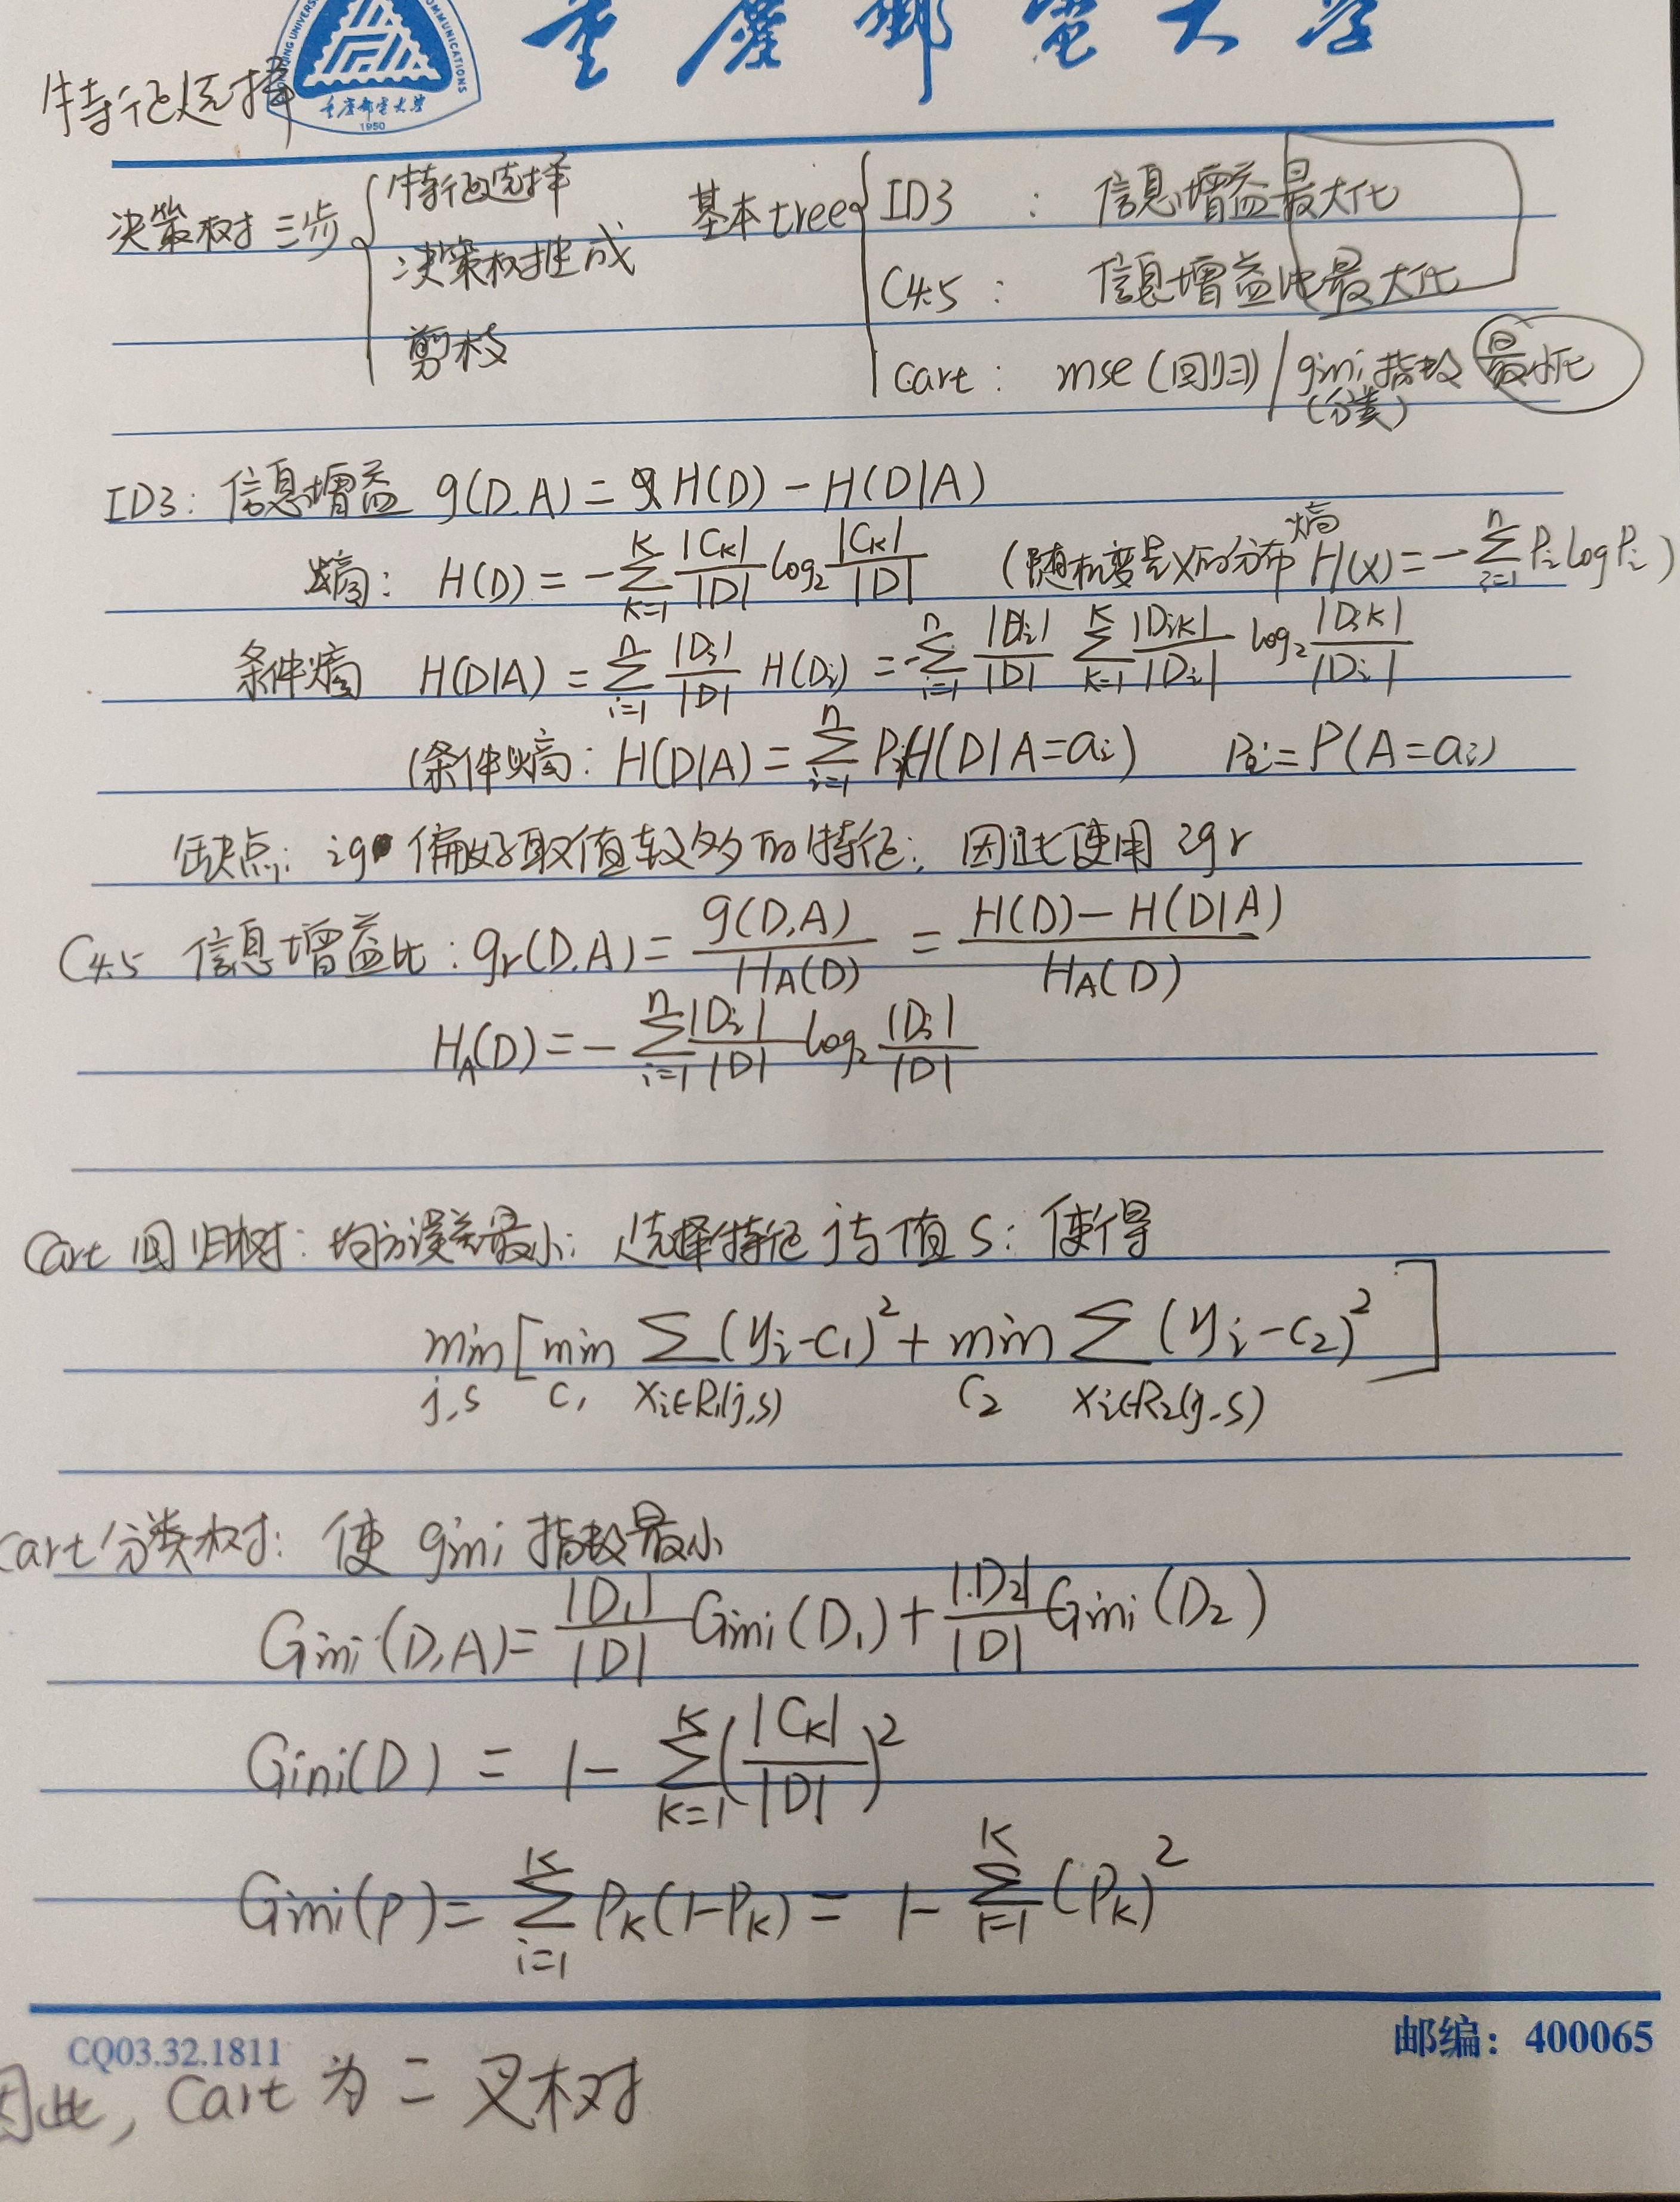 重慶郵電大学
重庆邮电大学
1950
特征选择
决策树三步 { 特征选择 基本tree { ID3 : 信息增益最大化
决策树生成 C4.5 : 信息增益比最大化
剪枝 Cart : mse (回归) / gini 指数 最小化
(分类)
ID3: 信息增益 g(D.A) = H(D) - H(D|A)
熵: H(D) = -∑_{K=1}^{K} |C_K|/|D| log₂ |C_K|/|D| (随机变量X的分布 熵 H(X) = -∑_{i=1}^{n} P_i log P_i)
条件熵 H(D|A) = ∑_{i=1}^{n} |D_i|/|D| H(D_i) = -∑_{i=1}^{n} |D_i|/|D| ∑_{K=1}^{K} |D_iK|/|D_i| log₂ |D_iK|/|D_i|
(条件熵: H(D|A) = ∑_{i=1}^{n} P_i H(D|A=a_i) P_i = P(A=a_i)
缺点: ig 偏好取值较多的特征; 因此使用 igr
C4.5 信息增益比: g_r(D.A) = g(D,A)/H_A(D) = H(D) - H(D|A)/H_A(D)
H_A(D) = -∑_{i=1}^{n} |D_i|/|D| log₂ |D_i|/|D|
Cart 回归树: 均方误差最小; 选择特征 j与值 S: 使得
min_{j,s} [min_{c₁} ∑_{x_i∈R₁(j,s)} (y_i-c₁)² + min_{c₂} ∑_{x_i∈R₂(j,s)} (y_i-c₂)²]
Cart分类树: 使 gini 指数最小
Gini(D,A) = |D₁|/|D| Gini(D₁) + |D₂|/|D| Gini(D₂)
Gini(D) = 1 - ∑_{K=1}^{K} (|C_K|/|D|)²
Gini(p) = ∑_{i=1}^{K} P_K(1-P_K) = 1 - ∑_{i=1}^{K} (P_K)²
CQ03.32.1811 邮编：400065
因此, Cart 为二叉树